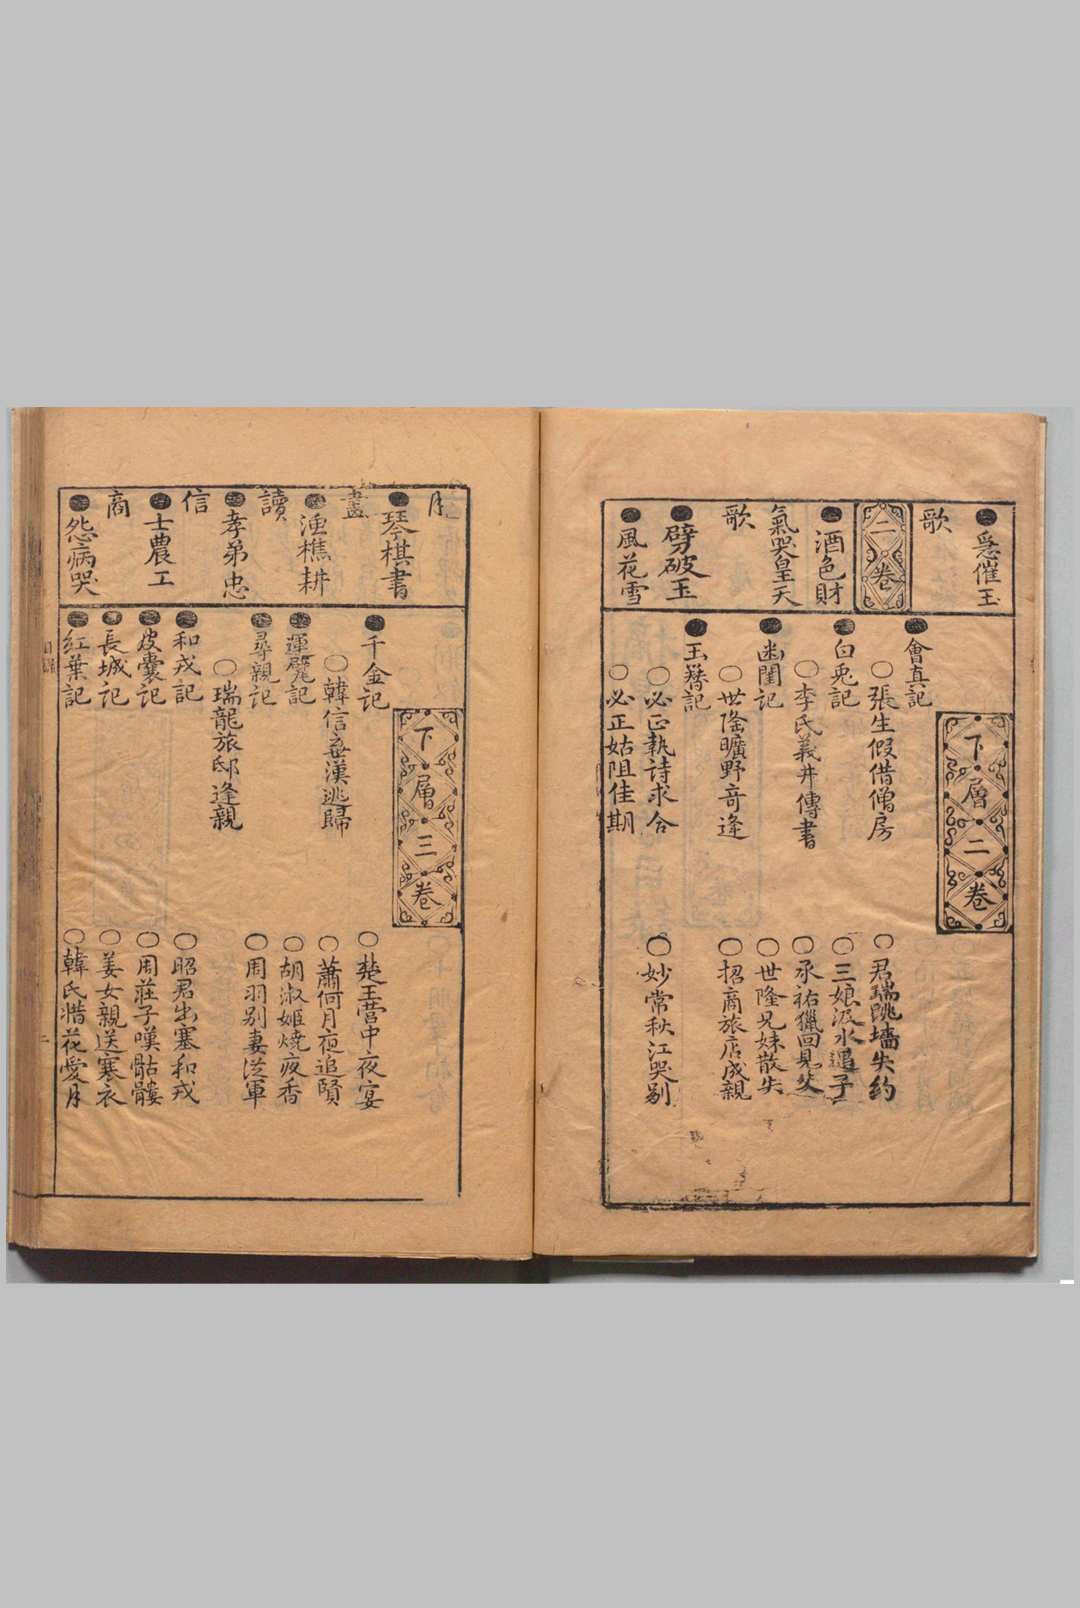 急催玉
歌
二卷
酒色財
氣哭皇天
歌
劈破玉
風花雪
下層二卷
會真記
張生假借僧房
君瑞跳墻失約
白兎記
三娘汲水遇子
李氏義井傳書
承祐獵回見父
幽閨記
世隆兄妹散失
世隆曠野奇逢
招商旅店成親
玉簪記
必正執詩求合
妙常秋江哭别
必正姑阻佳期
月
琴棋書
畫
漁樵耕
讀
孝弟忠
信
士農工
商
怨病哭
下層三卷
千金記
楚王营中夜宴
韓信弃漢逃歸
蕭何月夜追賢
運甓記
胡淑姬燒夜香
尋親記
周羽别妻從軍
瑞龍旅邸逢親
和戎記
昭君出塞和戎
皮囊記
周莊子嘆骷髏
長城記
姜女親送寒衣
紅葉記
韓氏惜花愛月
二